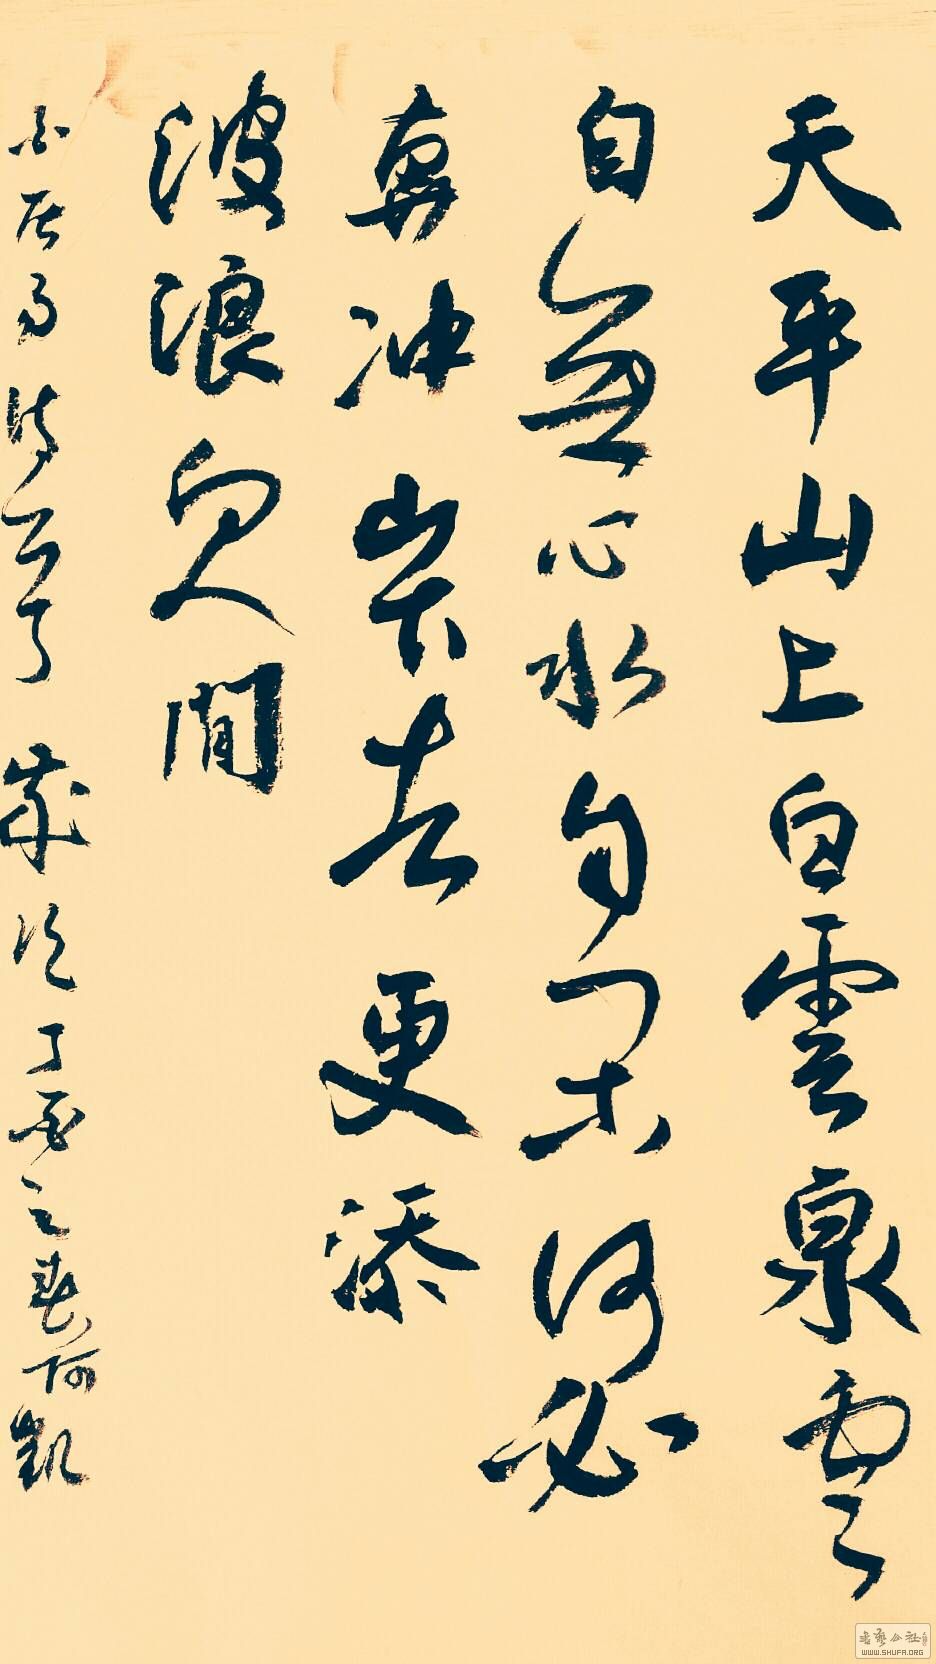 天平山上白雲泉雲
自無心水自閑何必
奔冲山下去更添
波浪向人間
白居易詩 歲次丁酉之春阿凱
書藝公社
WWW.SHUFA.ORG